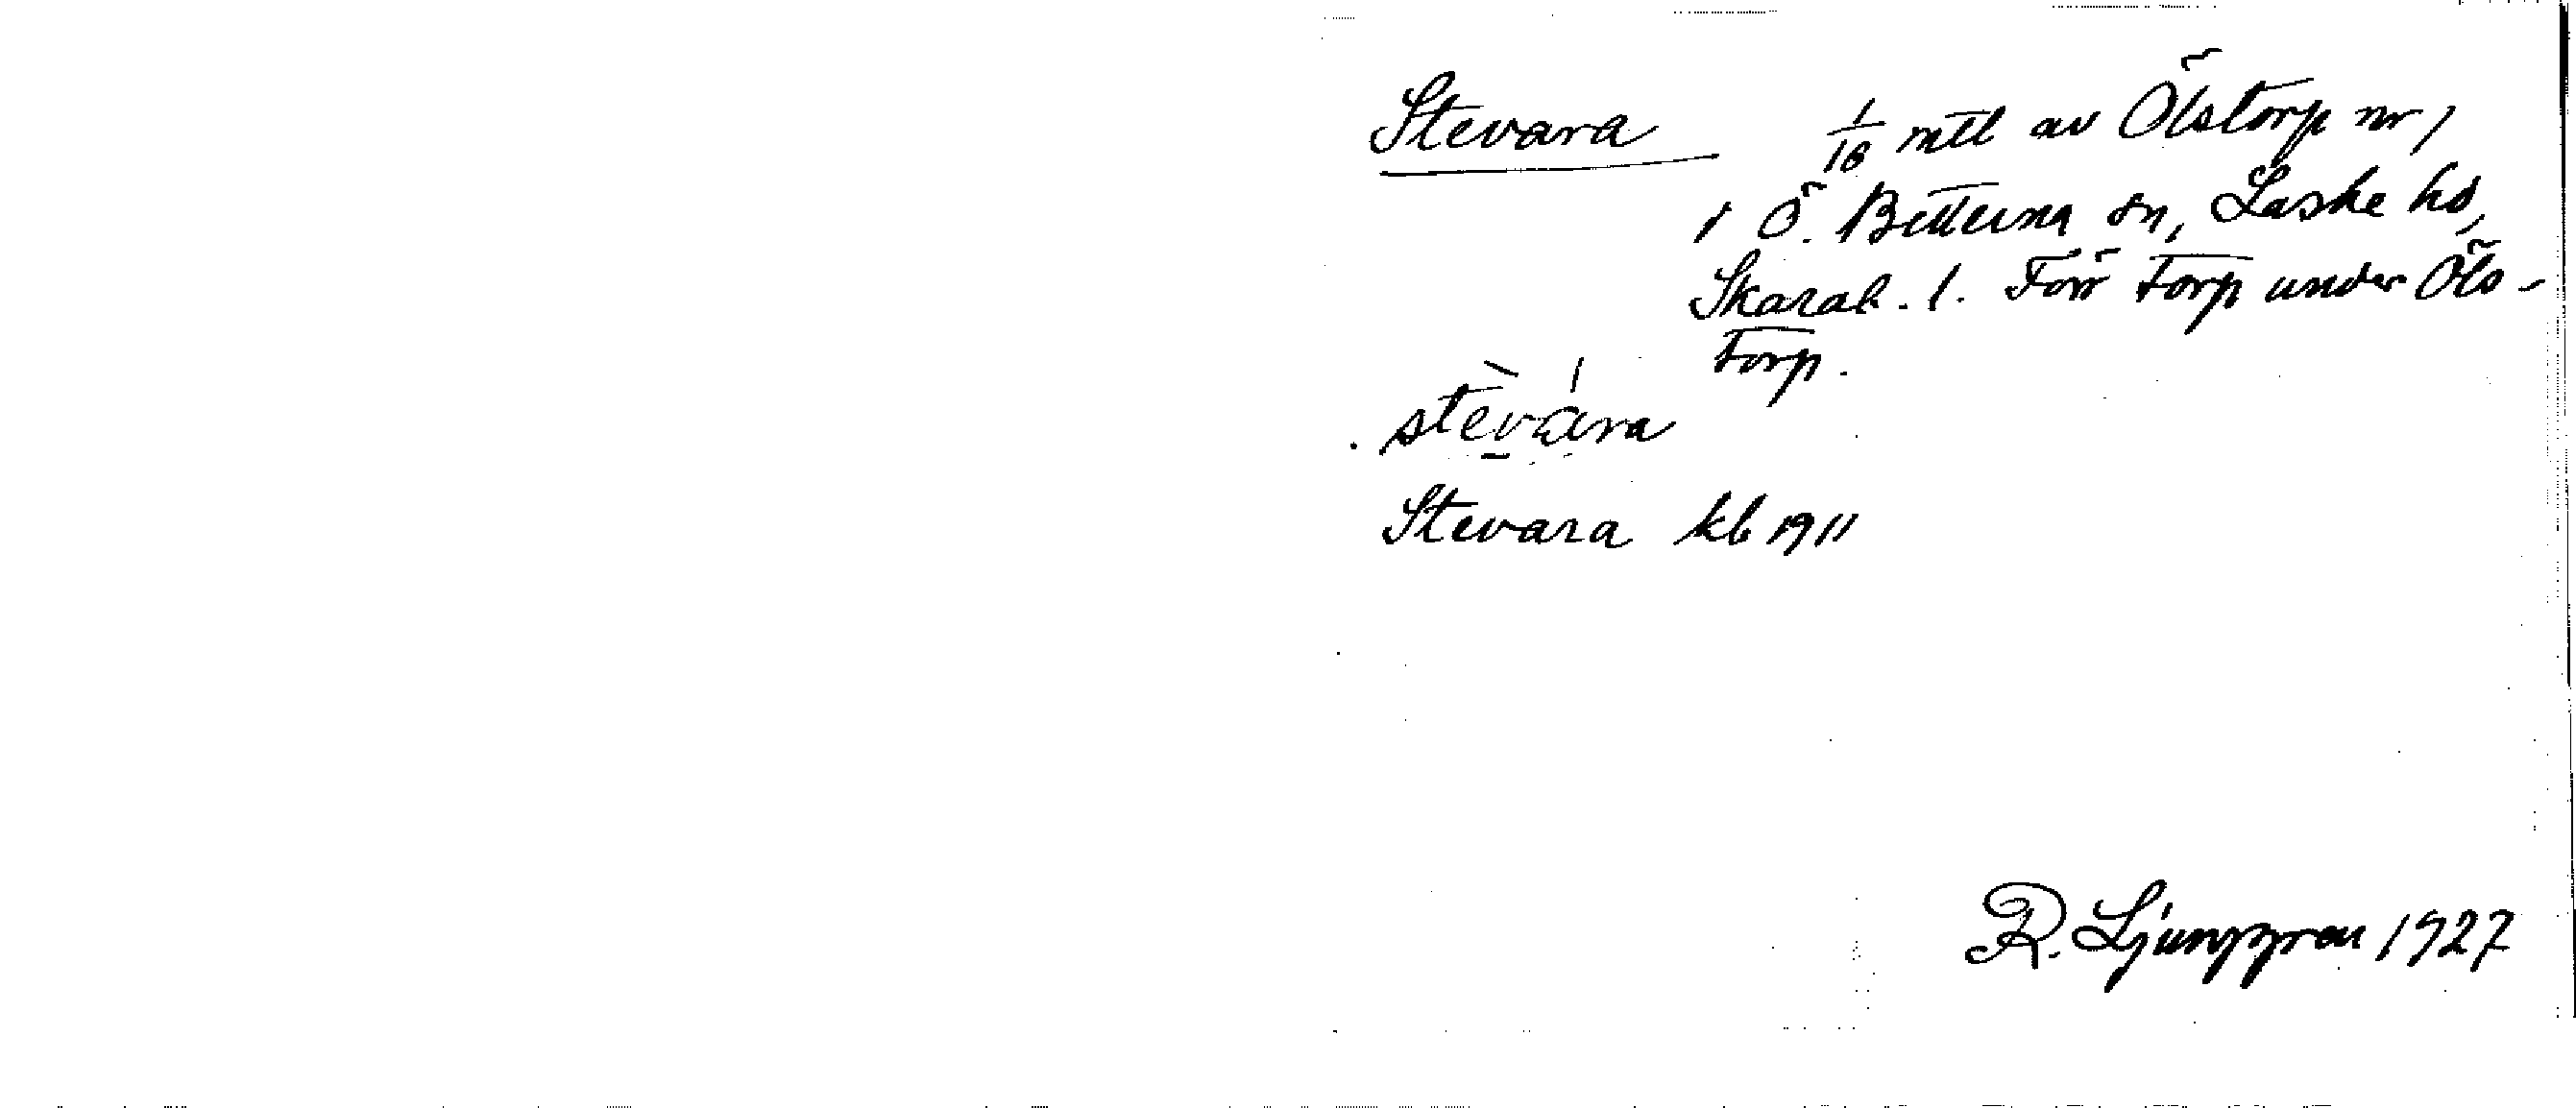 Stevara 1/16 mtl av Ölstorp nr 1
i Ö. Bitterna sn, Laske hd,
Skarab. l. Förr torp under Öls-
torp.
stèvára
Stevara kb 1911
R. Ljunggren 1927